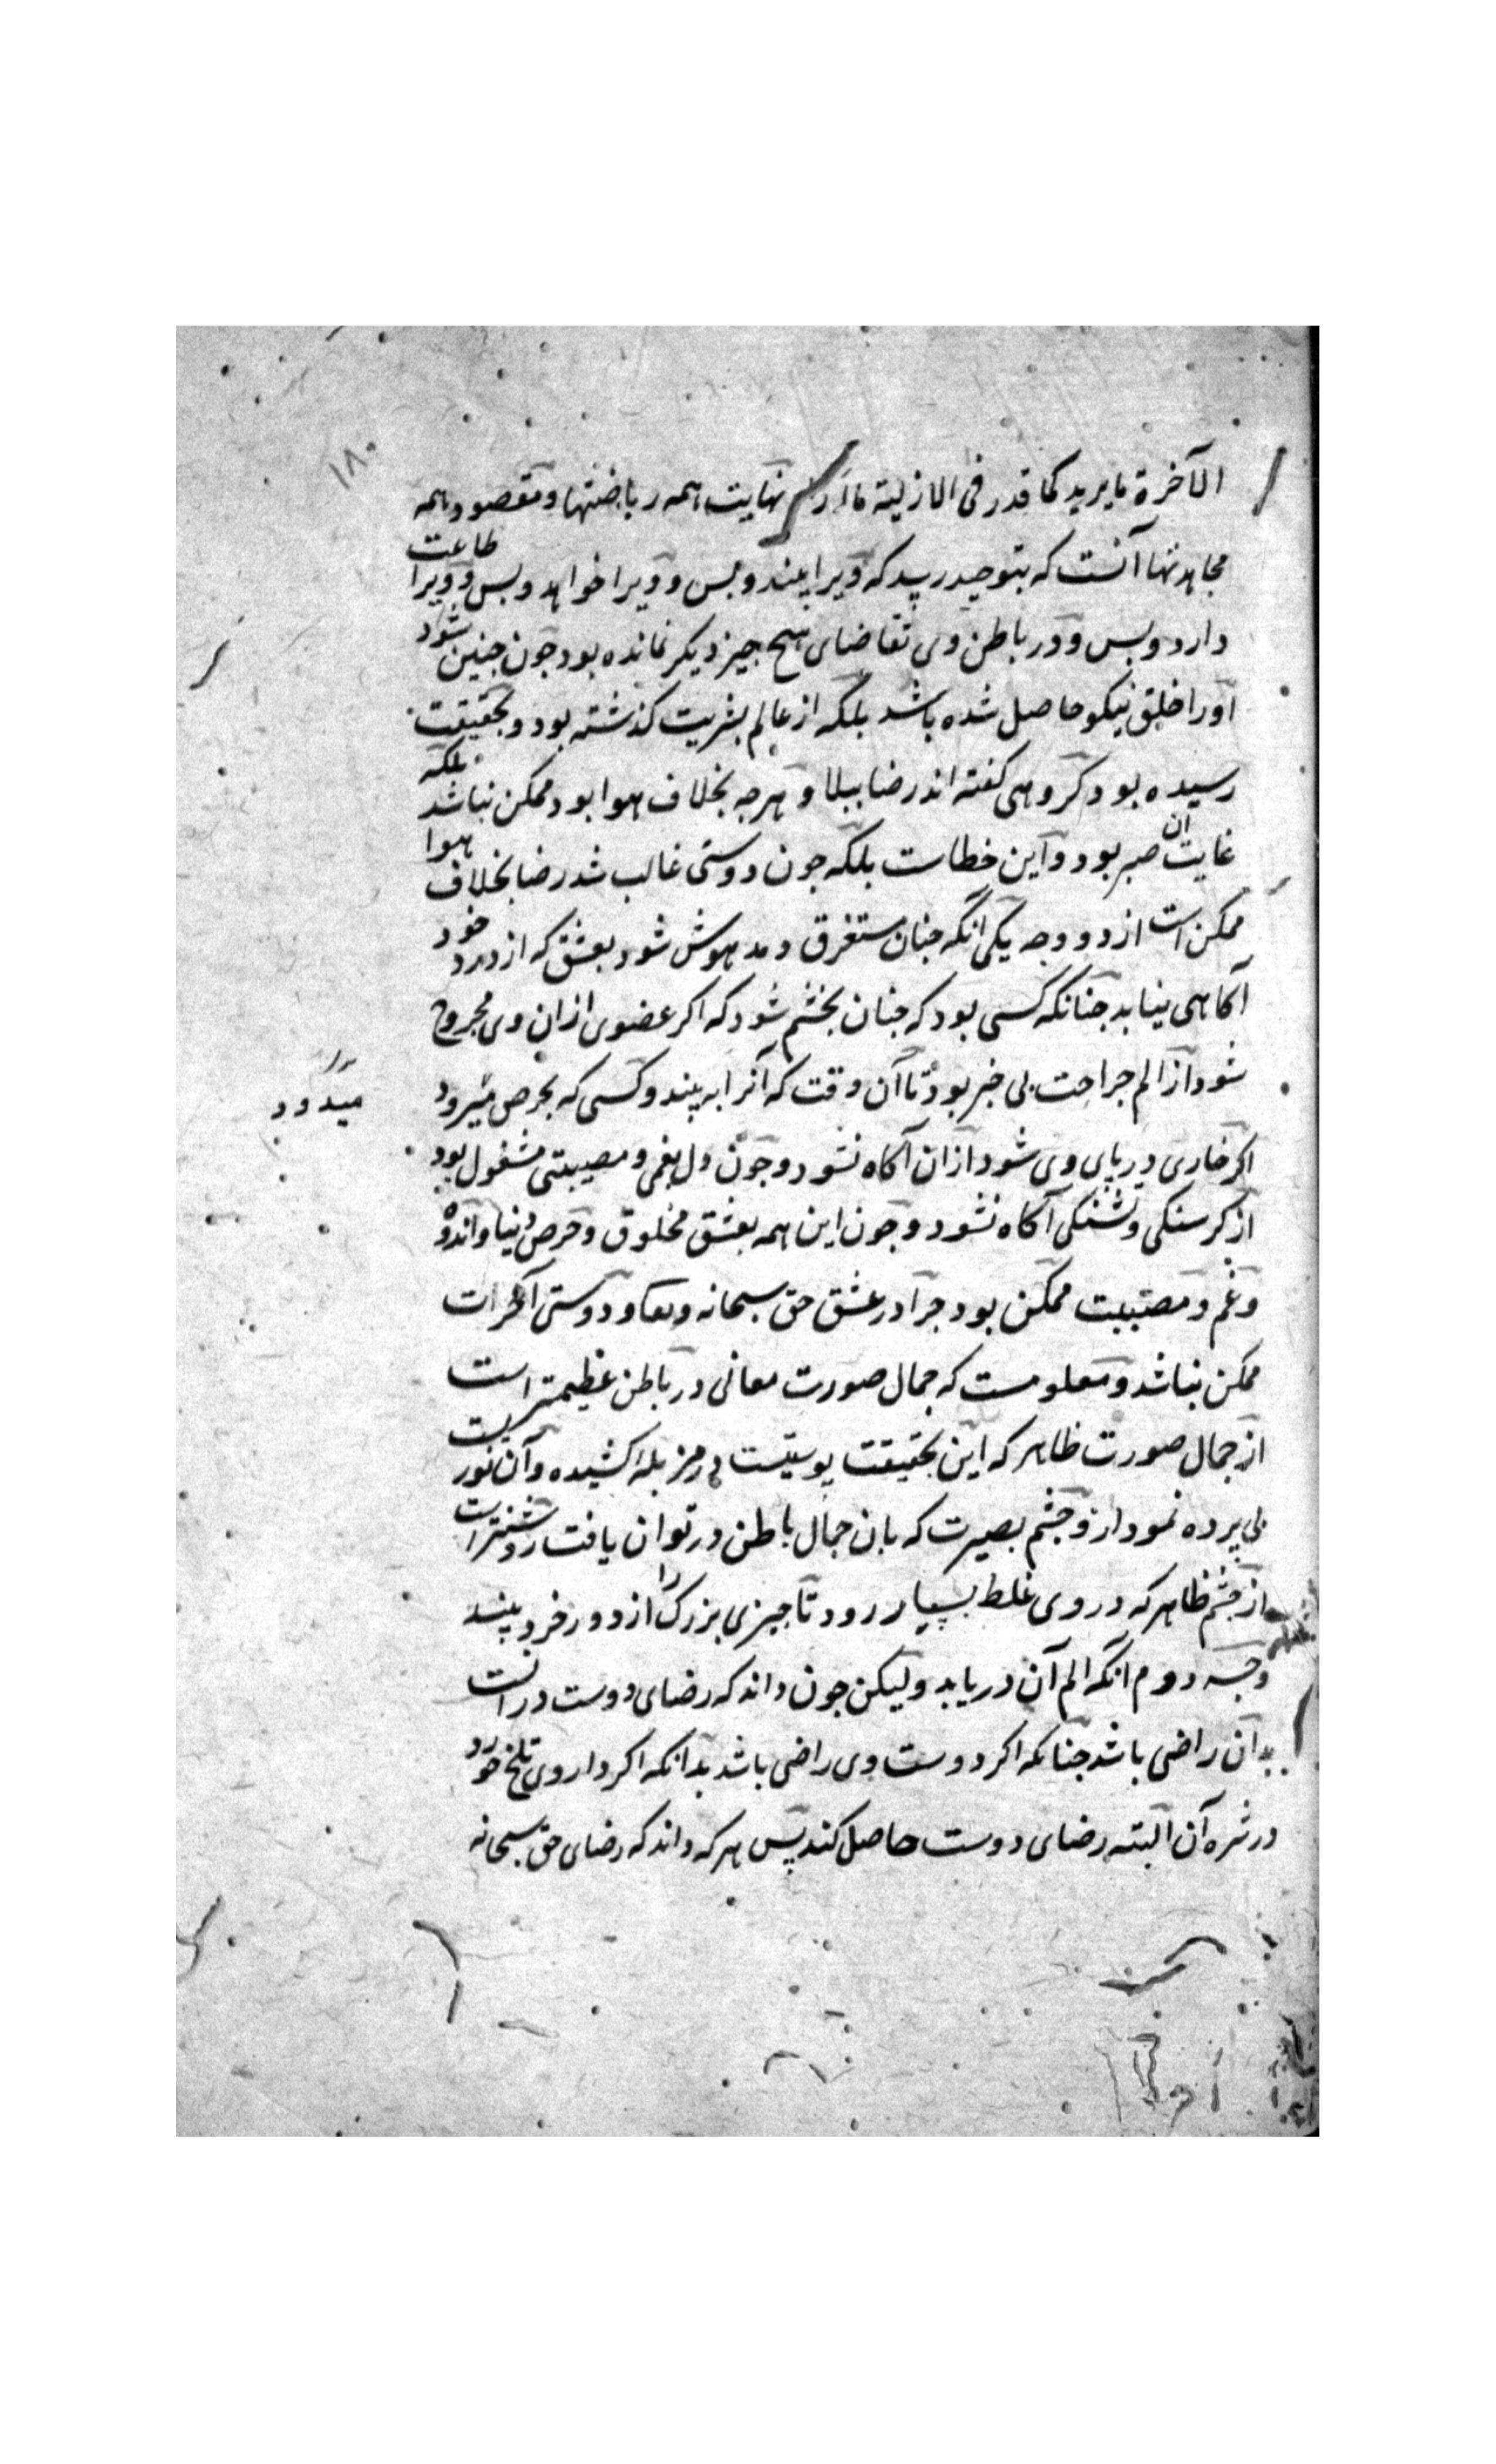 ۱۸۰
الآخرة ما یرید کما قدر فی الازلیة ما اراد نهایت همه ریاضتها و مقصود همه
مجاهدتها آنست که بتوحید رسد که ویرا بیند و بس و ویرا خواهد و بس و ویرا طاعت
دارد و بس و در باطن وی تقاضای هیچ چیز دیکر نمانده بود جون جنین شود
اورا خلق نیکو حاصل شده باشد بلکه از عالم بشریت کذشته بود و بحقیقت
رسیده بود کروهی کفته اند رضا ببلا و هرجه بخلاف هوا بود ممکن نباشد بلکه
غایت ان صبر بود و این خطاست بلکه جون دوستی غالب شد رضا بخلاف هوا
ممکن است از دو وجه یکی انکه جنان مستغرق و مدهوش شود بعشق که از درد خود
آکاهی نیابد جنانکه کسی بود که جنان بخشم شود که اکر عضوی ازان وی مجروح
شود از الم جراحت بی خبر بود تا آن وقت که آنرا به بیند و کسی که بحرص میرود
میدود
اکر خاری در پای وی شود ازان آکاه نشود و جون دل بغمی و مصیبتی مشغول بود
از کرسنکی و تشنکی آکاه نشود و جون این همه بعشق مخلوق و حرص دنیا و اندوه
و غم و مصیبت ممکن بود جرا در عشق حق سبحانه و تعا و دوستی آخرت
ممکن نباشد و معلومست که جمال صورت معانی در باطن عظیمتر است
از جمال صورت ظاهر که این بحقیقت پوستیست در مزبله کشیده و آن نوریست
بی پرده نمودار و جشم بصیرت که بان جمال باطن در توان یافت روشنتر است
از جشم ظاهر که در وی غلط بسیار رود تا جیزی بزرک را از دور خرد بیند
وجه دوم انکه الم آن دریابد ولیکن جون داند که رضای دوست در انست
بدان راضی باشد جنانکه اکر دوست وی راضی باشد بدانکه اکر داروی تلخ خورد
در شره آن البته رضای دوست حاصل کند پس هر که داند که رضای حق سبحانه